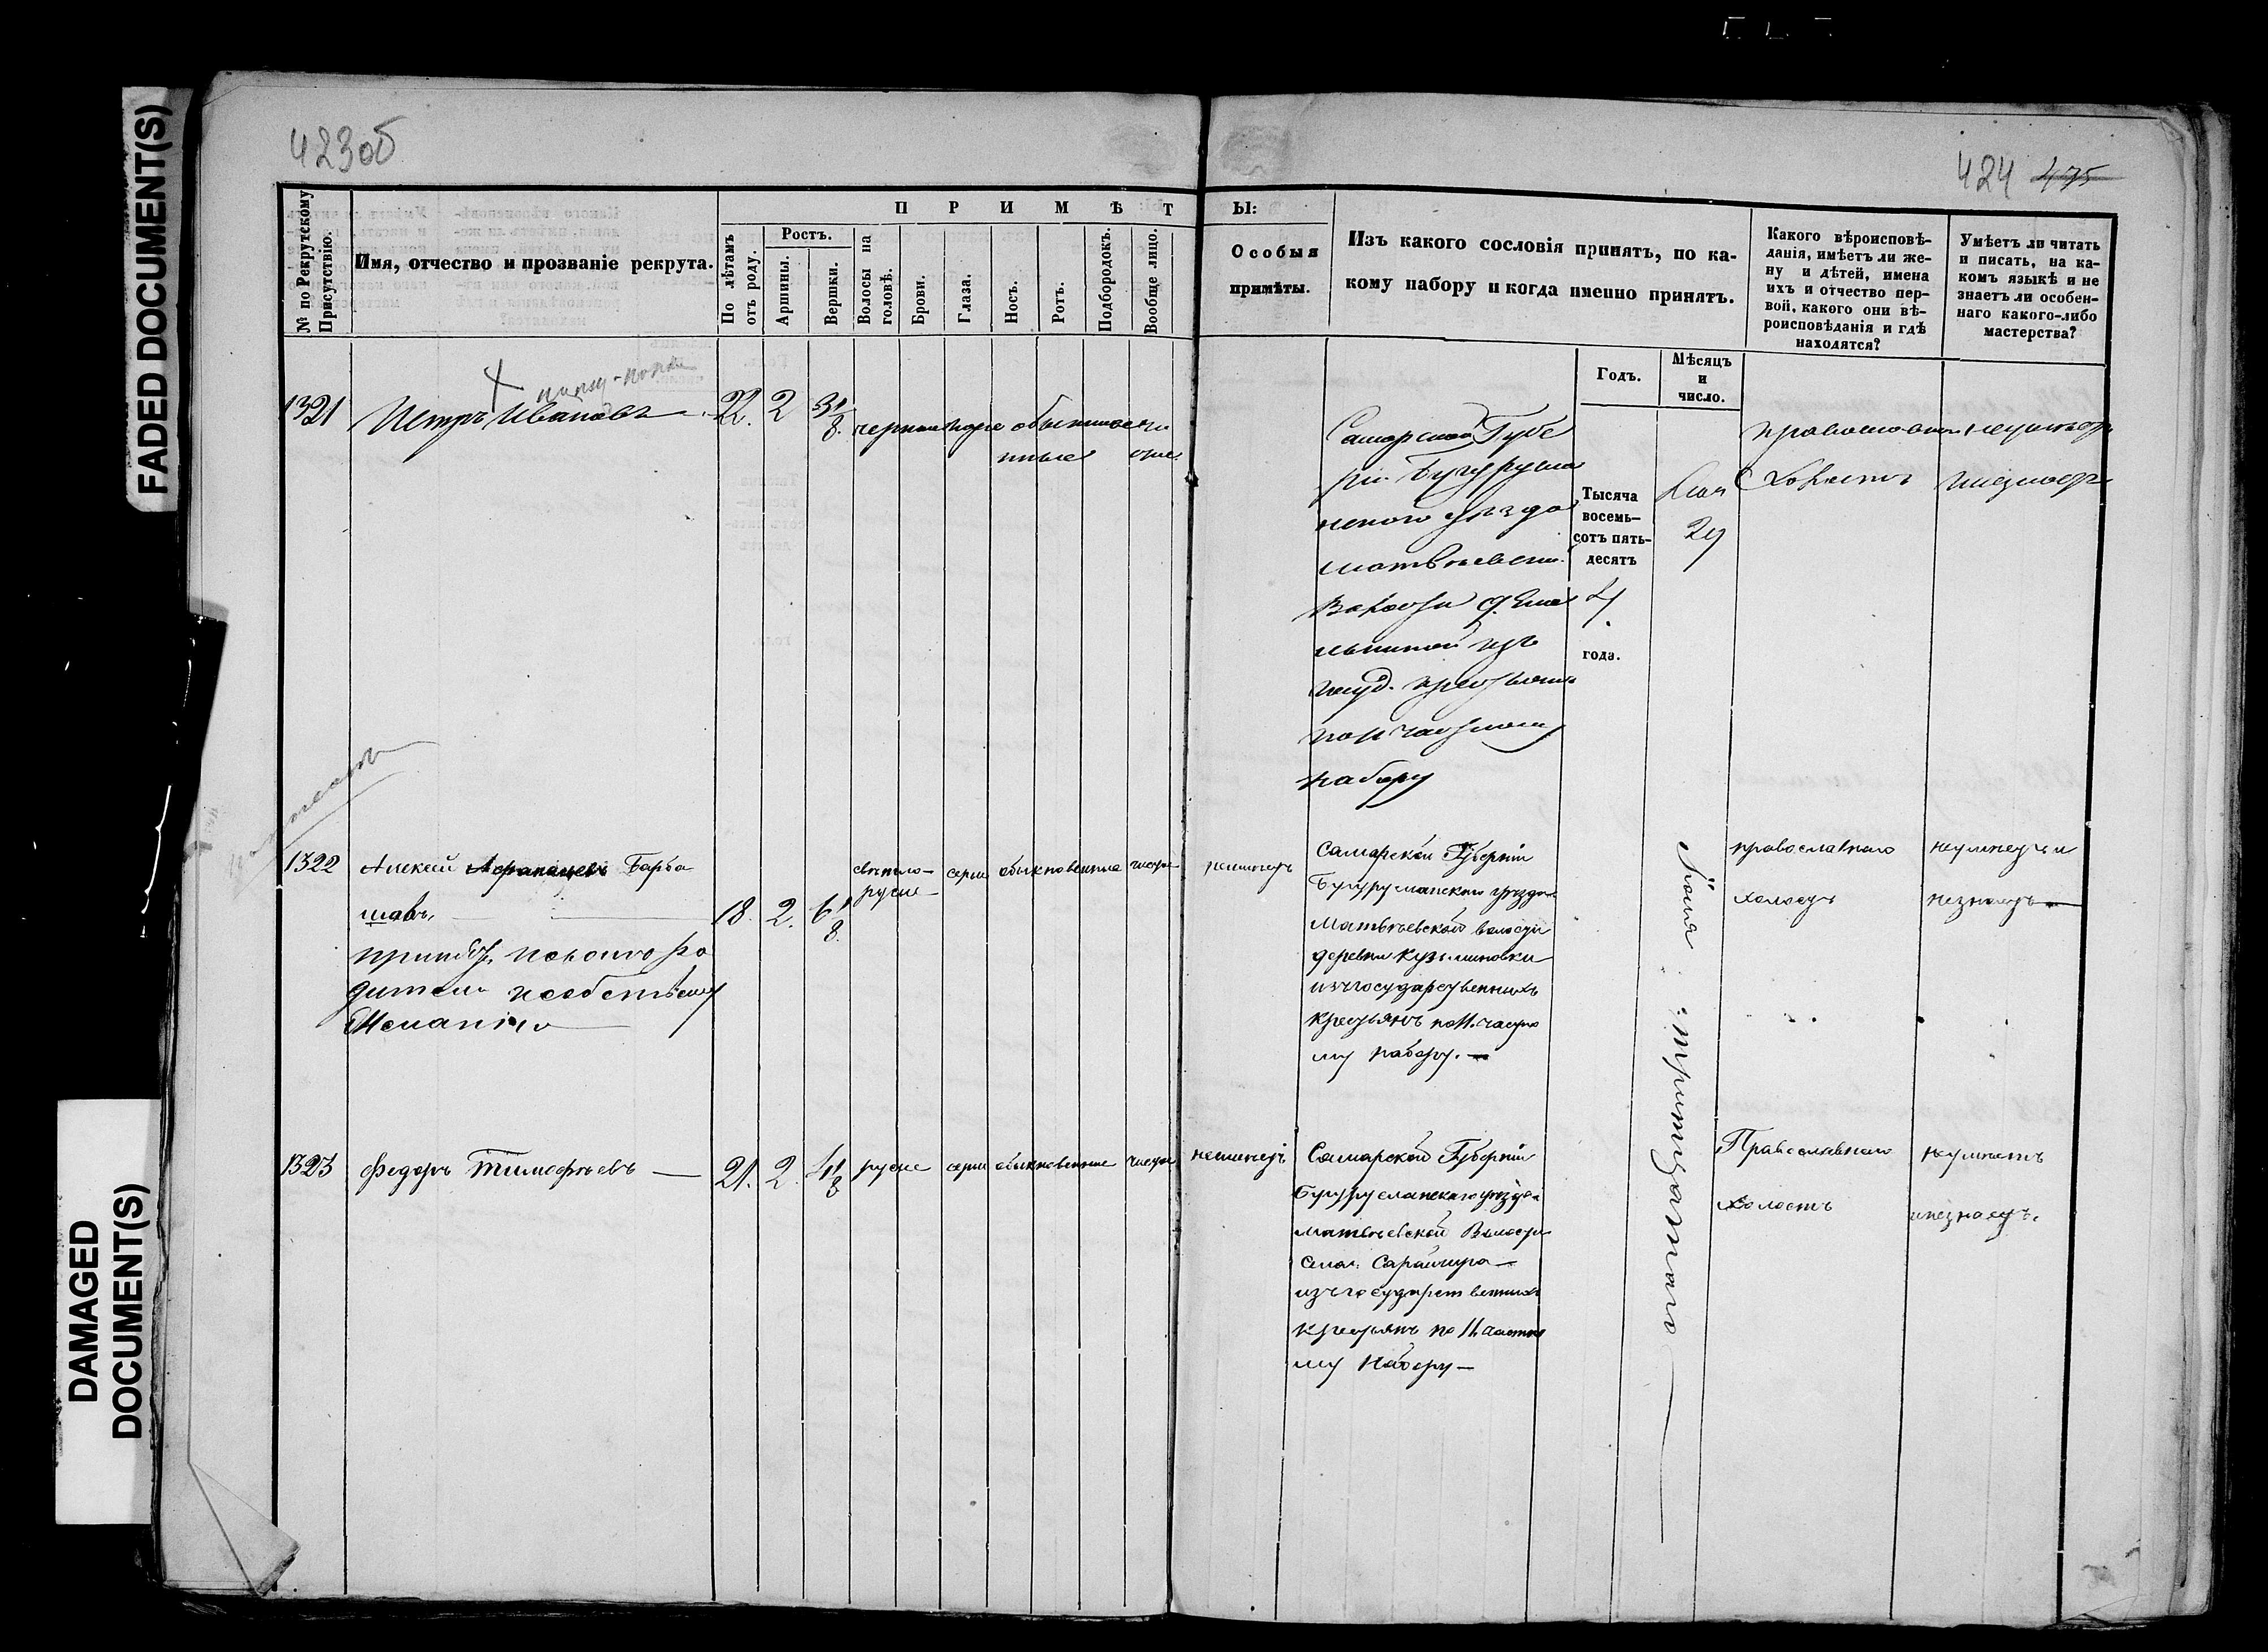 FADED DOCUMENT(S)
DAMAGED
DOCUMENT(S)
423об
424 475
П Р И М Ѣ Т Ы:
№ по Рекрутскому
Присутствію.
Имя, отчество и прозваніе рекрута.
По лѣтамъ
отъ роду.
Ростъ.
Аршины.
Вершки.
Волосы на
головѣ.
Брови.
Глаза.
Носъ.
Ротъ.
Подбородокъ.
Вообще лицо.
Особыя
примѣты.
Изъ какого сословія принятъ, по ка-
кому набору и когда именно принятъ.
Какого вѣроисповѣ-
данія, имѣетъ ли же-
ну и дѣтей, имена
ихъ и отчество пер-
вой, какого они вѣ-
роисповѣданія и гдѣ
находятся?
Умѣетъ ли читать
и писать, на ка-
комъ языкѣ и не
знаетъ ли особен-
наго какого-либо
мастерства?
Годъ.
Мѣсяцъ
и
число.
1321 Петръ Ивановъ 22. 2 3 1/8.
Самарской Губе
ріи Бугурусла
нского уѣзда
матвѣевской
Волости
изъ
госуд. крестьянъ
по 11 частному
набору
Тысяча
восемь-
сотъ пять-
десятъ
4
года.
29
православнаго
Холостъ
1322 Алексей Афанасьевъ Барба
шовъ 18. 2. 6 1/8.
свѣтло-
русые
серые обыкновенные чистое
неимеетъ
Самарской Губерніи
Бугурусланскаго уѣзда
Матвѣевской волости
деревни Кузьминовки
изъ государственныхъ
крестьянъ по 11. частно
му набору.
православнаго
холостъ
неумѣетъ и
незнаетъ
1323 Федоръ Тимофѣевъ 21. 2. 4 1/8 русые серые обыкновенные чистое
неимеетъ
Самарской Губерніи
Бугурусланскаго уѣзда
матвѣевской Волости
Села Сарайгира
изъ государственныхъ
крестьянъ по 11 частно
му набору
Іюня тритцатаго
Православнаго
холостъ
неумѣетъ
инезнаетъ.